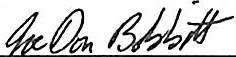 Joe Don Bobbitt